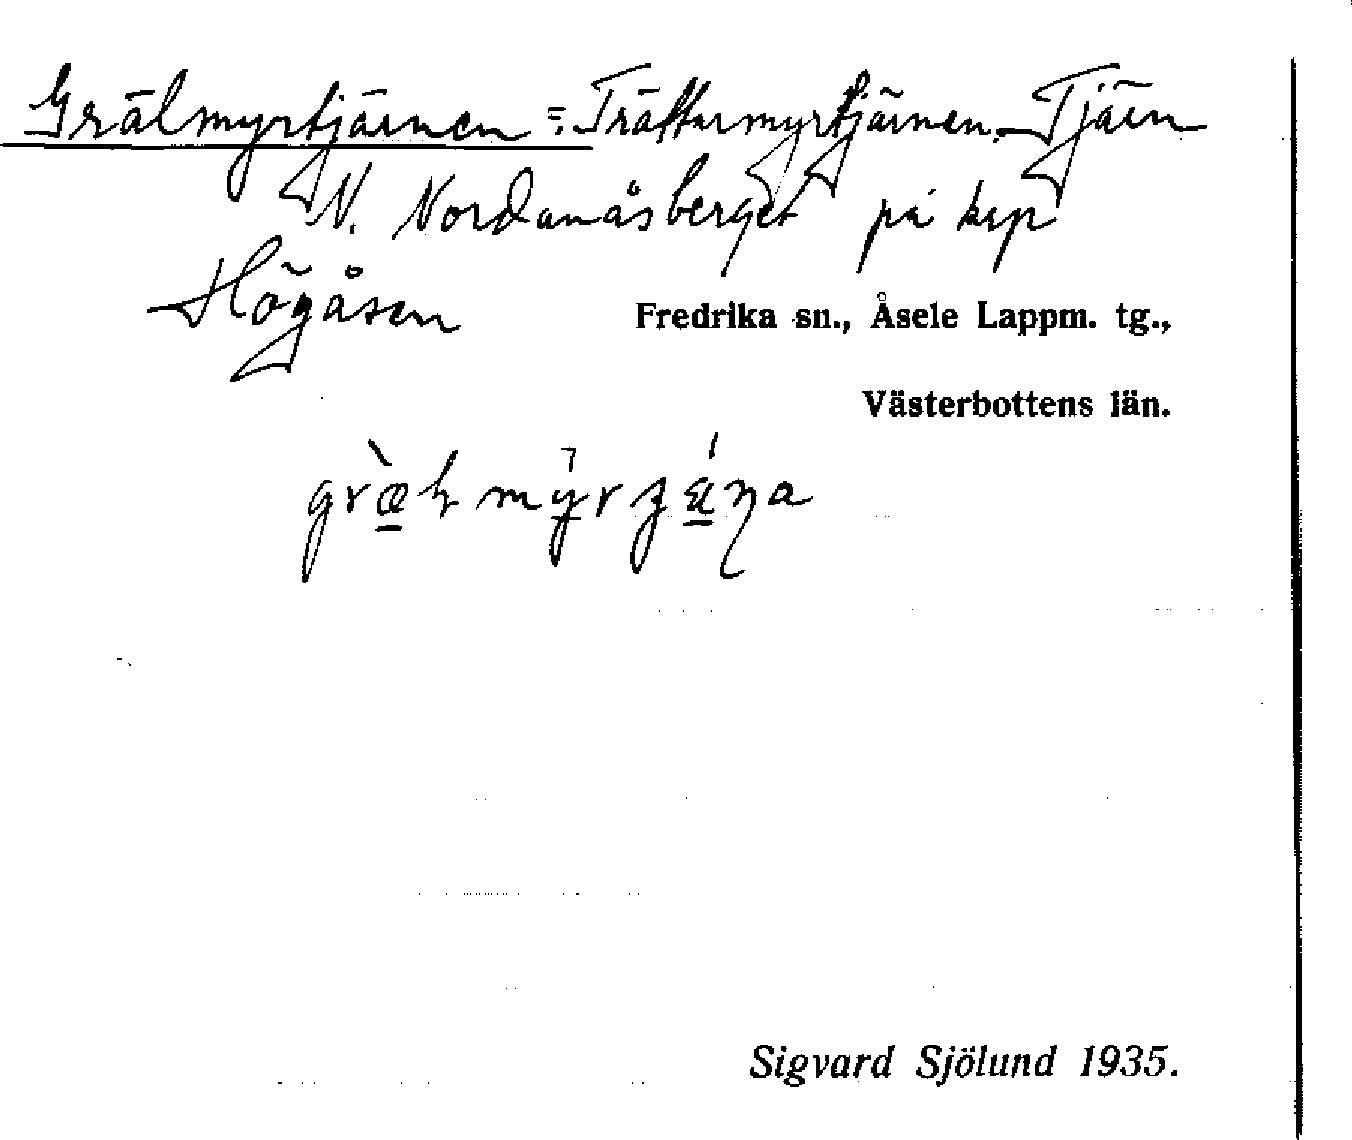 Grälmyrtjärnen = Trättarmyrtjärnen. Tjärn
N. Nordanåsberget på krp
Högåsen
Fredrika sn., Åsele Lappm. tg.,
Västerbottens län.
Sigvard Sjölund 1935.